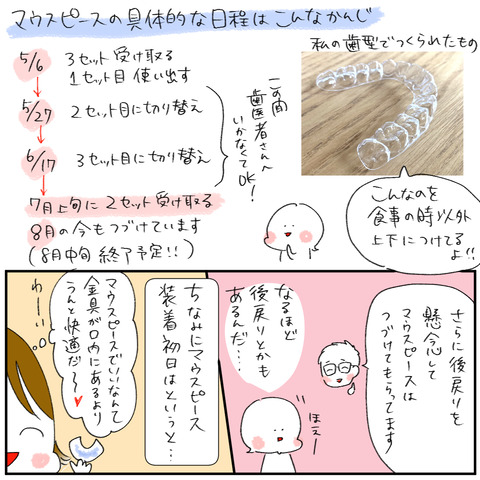 マウスピースの具体的な日程はこんなかんじ
私の歯型でつくられたもの
5/6
3セット受け取る
1セット目使い出す
5/27
2セット目に切り替え
6/17
3セット目に切り替え
この間
歯医者さんへ
いかなくて
OK!
7月上旬に2セット受け取る
8月の今もつづけています
(8月中旬終了予定!!)
こんなのを
食事の時以外
上下につけてる
よ!!
さらに後戻りを
懸念して
マウスピースは
つづけてもらってます
なるほど
後戻りとかも
あるんだ…
ほえー
ちなみにマウスピース
装着初日はというと…
マウスピースでいいなんて
金具が口内にあるより
うんと快適だ〜♥
わーい